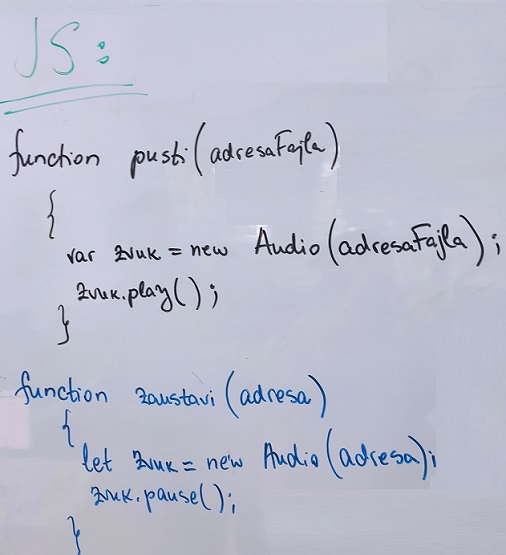 JS:
function pusti(adresaFajla)
{
var zvuk = new Audio(adresaFajla);
zvuk.play();
}
function zaustavi(adresa)
{
let zvuk = new Audio(adresa);
zvuk.pause();
}